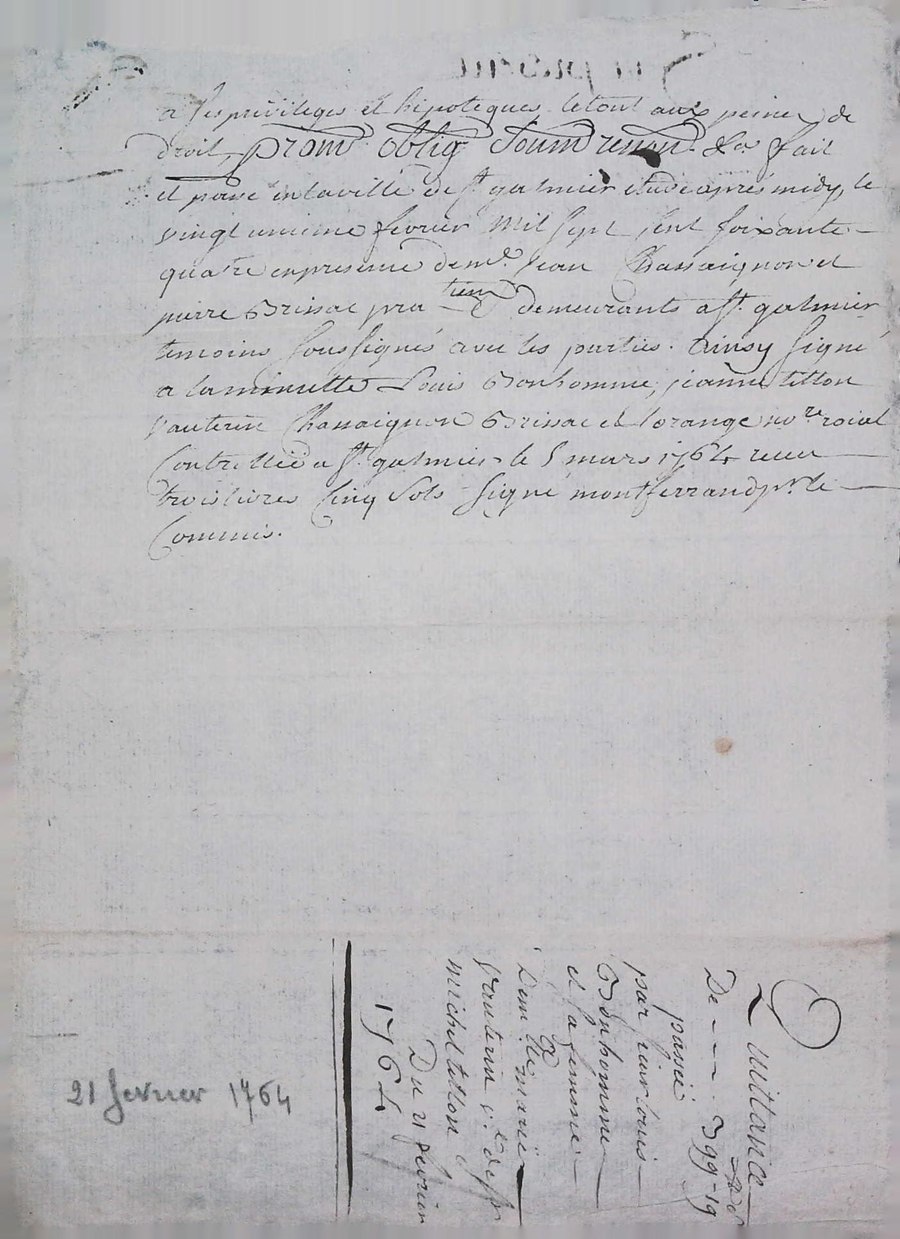 a ses privileges et hipoteques le tout aux peines de
droit, prom. oblig. soum. renon. &a. fait
et passé en la ville de st. galmier etude après midy, le
vingt unieme fevrier mil sept sent soixante
quatre en presence de me. jean Chassaignon et
pierre Brissac praticien demeurants a st. galmier
temoins soussignés avec les parties. ainsy signé
a la minutte Louis Bonhomme, jeanne tillon
vauterin Chassaignon Brissac et Lorange nore. roial
Controllé a st. galmier le 5 mars 1764 receu
trois livres Cinq sols signé montferrand pr. le
Commis.
Quittance
De 399 - 19
passée
par sieur Louis
Bonhomme
et sa femme
a
Dem.lle marie
vauterin ve. de sr.
michel tillon
Du 21 fevrier
1764
21 fevrier 1764